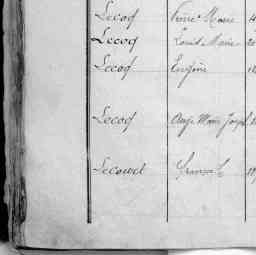 Lecoq Pierre Marie 4
Lecoq Louis Marie 20
Lecoq Eugène 1
Lecoq Ange Marie Joseph
Lecouet François